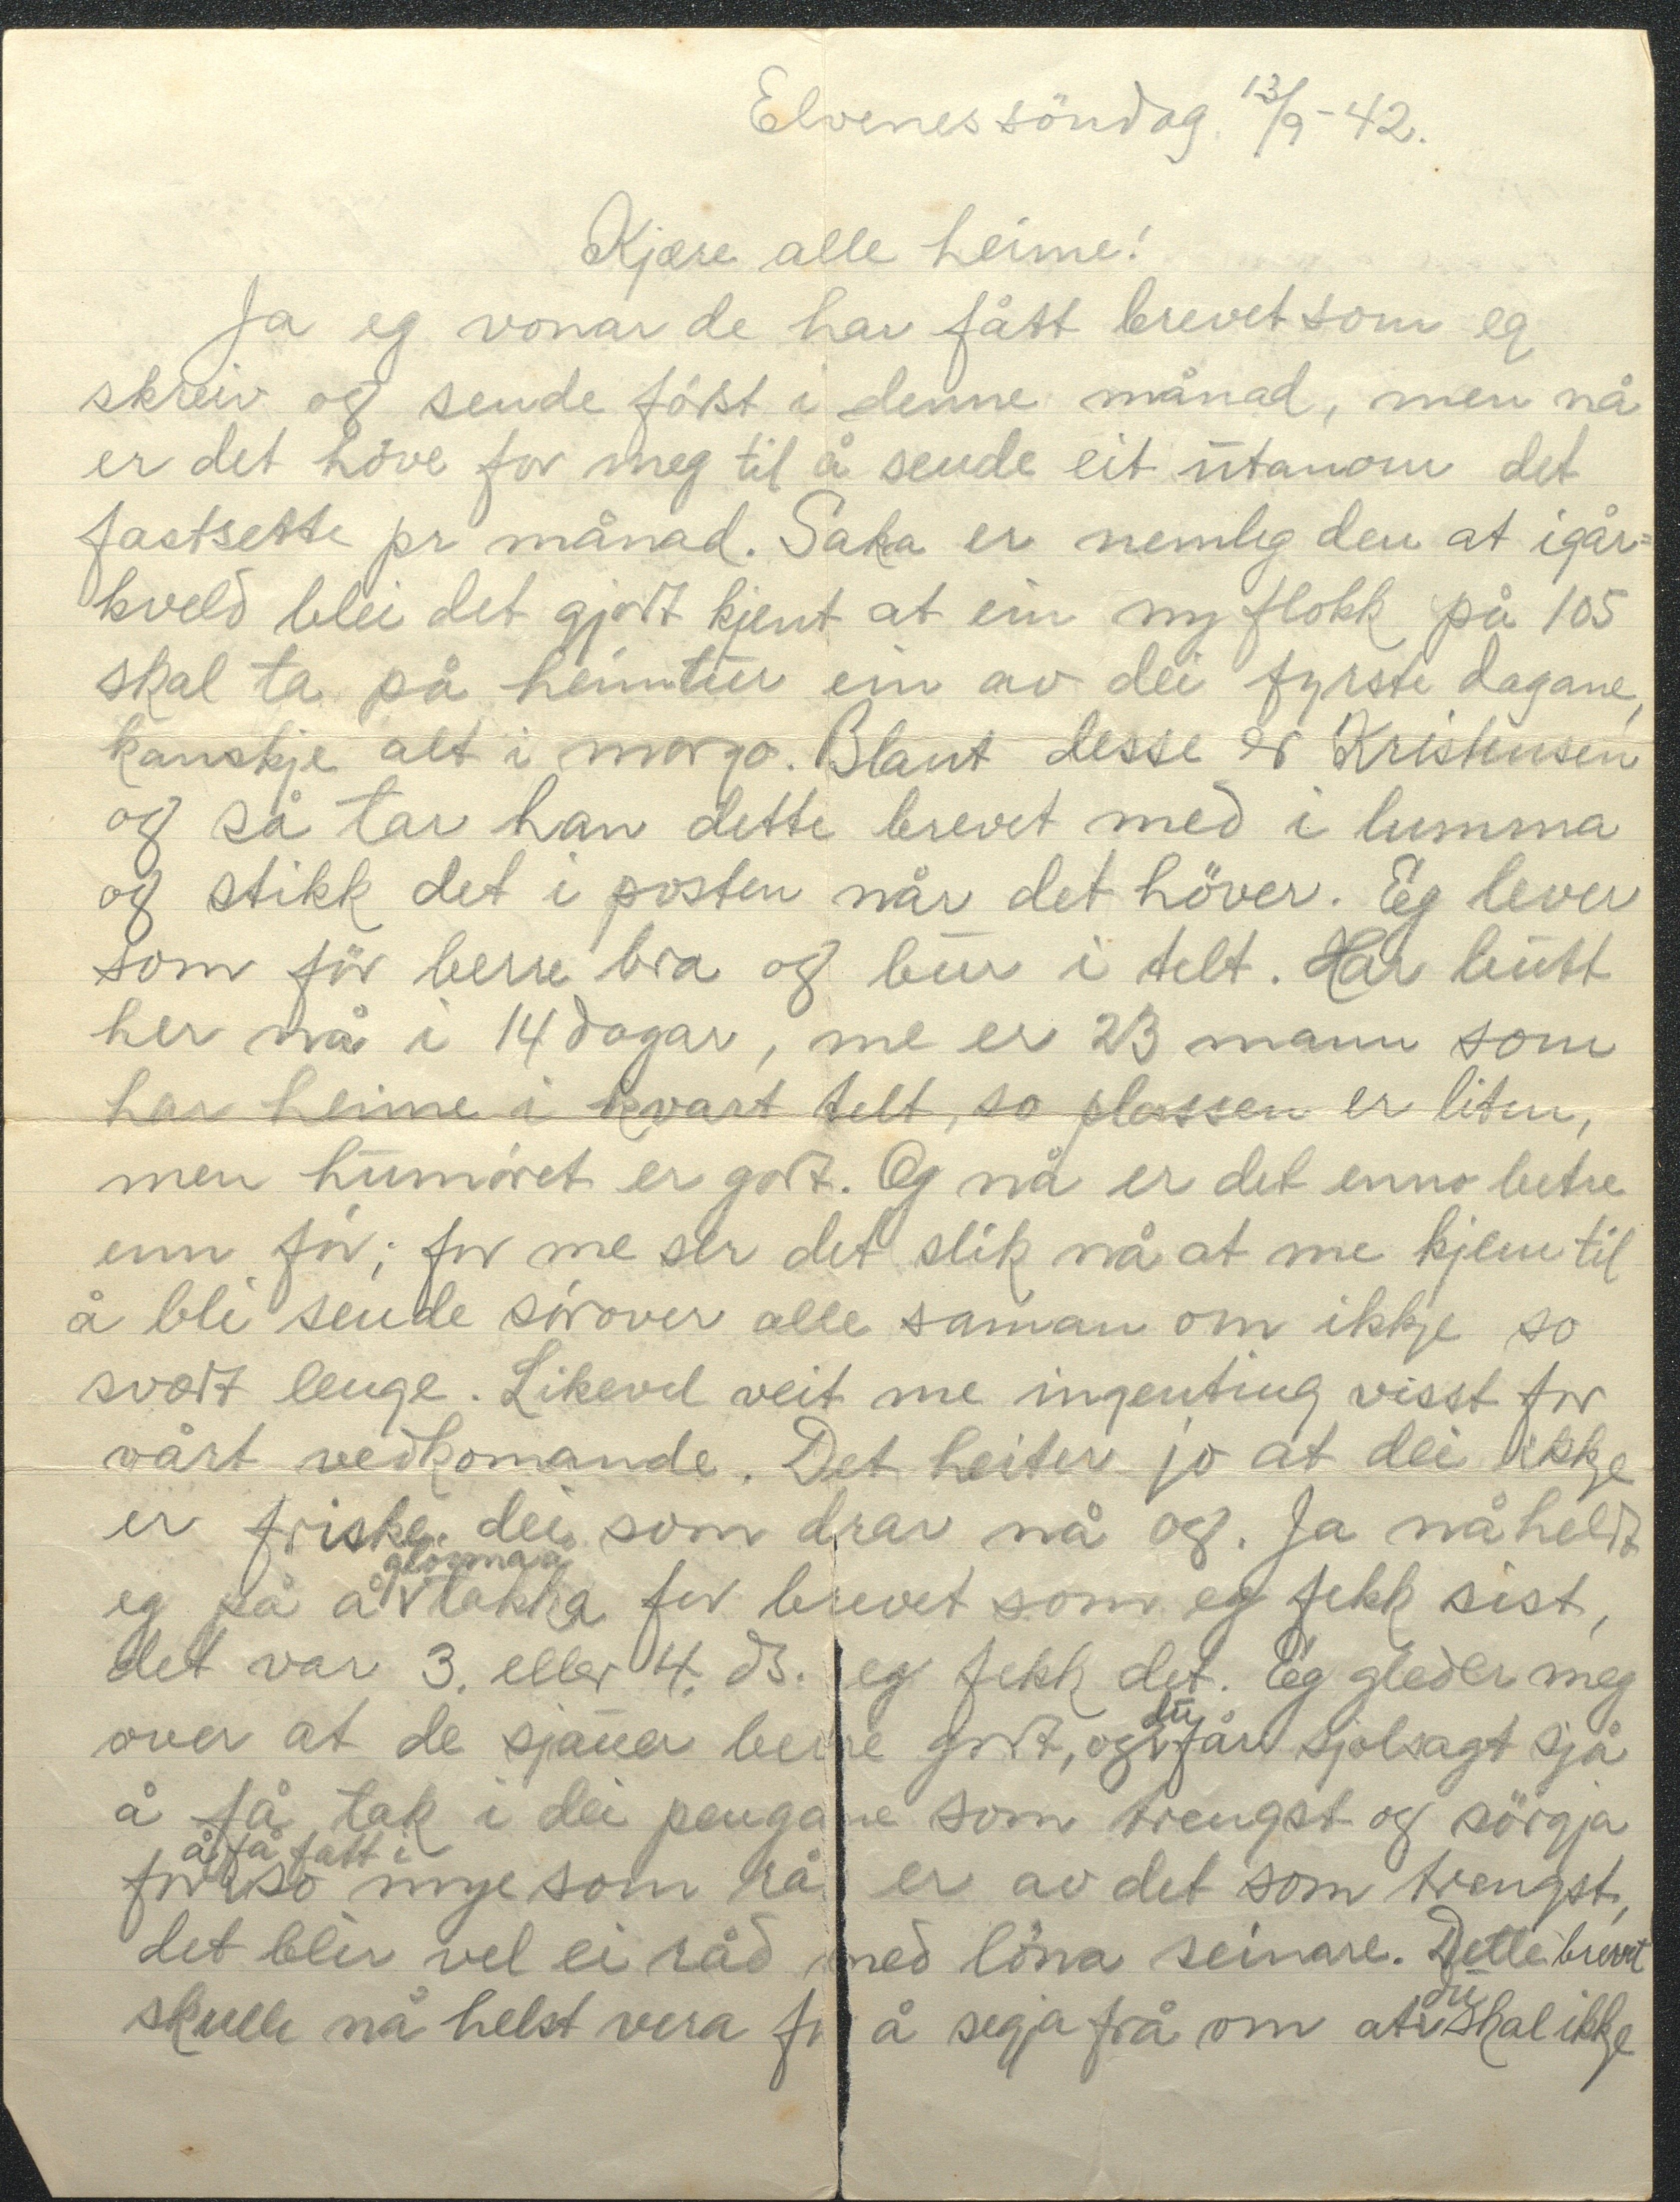 Elvenes söndag. 13/9-42.
Kjære alle heime!
Ja eg vonar de har fått brevet som eg
skreiv og sende först i denne månad, men nå
er det höve for meg til å sende eit utanom det
fastsette pr månad. Saka er nemleg den at igår=
kveld blei det gjort kjent at ein ny flokk på 105
skal ta på heimtur ein av dei fyrste dagane,
kanskje alt i morgo. Blant desse er Kristensen
og så tar han dette brevet med i lumma
og stikk det i posten når det höver. Eg lever
som för berre bra og bur i telt. Har butt
her nå i 14 dagar, me er 23 mann som
har heime i kvart telt, so plassen er liten,
men humöret er godt. Og nå er det enno betre
enn för; for me ser det slik nå at me kjem til
å bli sende sörover alle saman om ikkje so
svært lenge. Likevel veit me ingenting visst for
vårt vedkomande. Det heiter jo at dei ikkje
er friske dei som drar nå og. Ja nå heldt
eg på å glömma å takka for brevet som eg fekk sist,
det var 3. eller 4. ds. eg fekk det. Eg gleder meg
over at de sjauer berre godt, og du får sjolsagt sjå
å få tak i dei pengane som trengst og sörgja
for å få fatt i so mye som rå er av det som trengst,
det blir vel ei råd med löna seinare. Dette brevet
skulle nå helst vera for å segja frå om at du skal ikkje